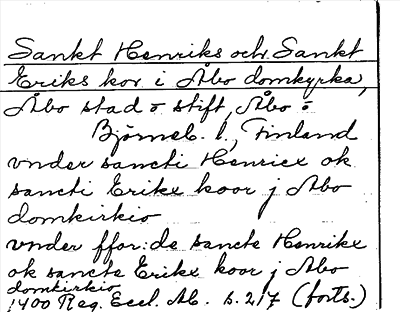 Sankt Henriks och Sankt
Eriks kor i Åbo domkyrka,
Åbo stad o stift, Åbo o
Björneb. l., Finland
vnder sancti Henricx ok
sancti Erikx koor j Abo
domkirkio
vnder ffor:de sancte Henrikx
ok sancte Erikx koor j Abo
domkirkio
1400 Reg. Eccl. Ab. s. 217 (forts.)